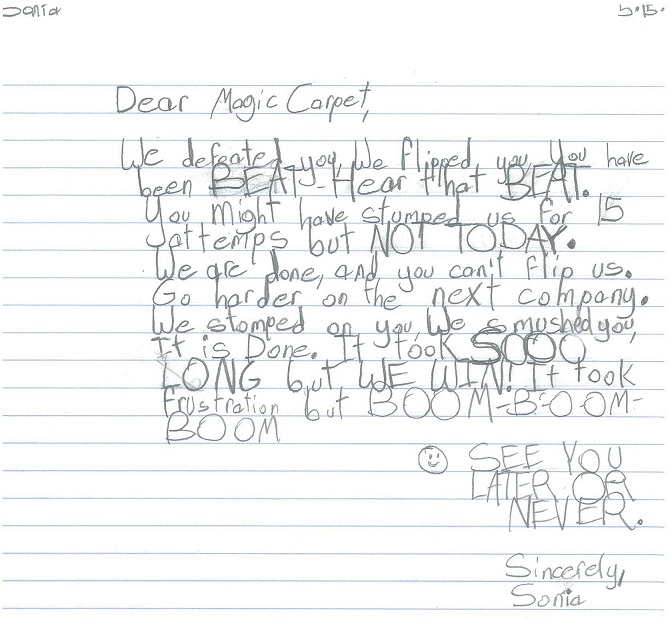 Sonia 5.15.
Dear Magic Carpet,
We defeated you, We flipped you, You have
been BEAT-Hear that BEAT.
You might have stumped us for 15
attemps but NOT TODAY.
We are done, and you can't flip us.
Go harder on the next company.
We stomped on you, We smushed you,
It is Done. It took SOOO
LONG but WE WIN! It took
Frustration but BOOM-B-O-OM-
BOOM
SEE YOU
LATER OR
NEVER.
Sincerely,
Sonia